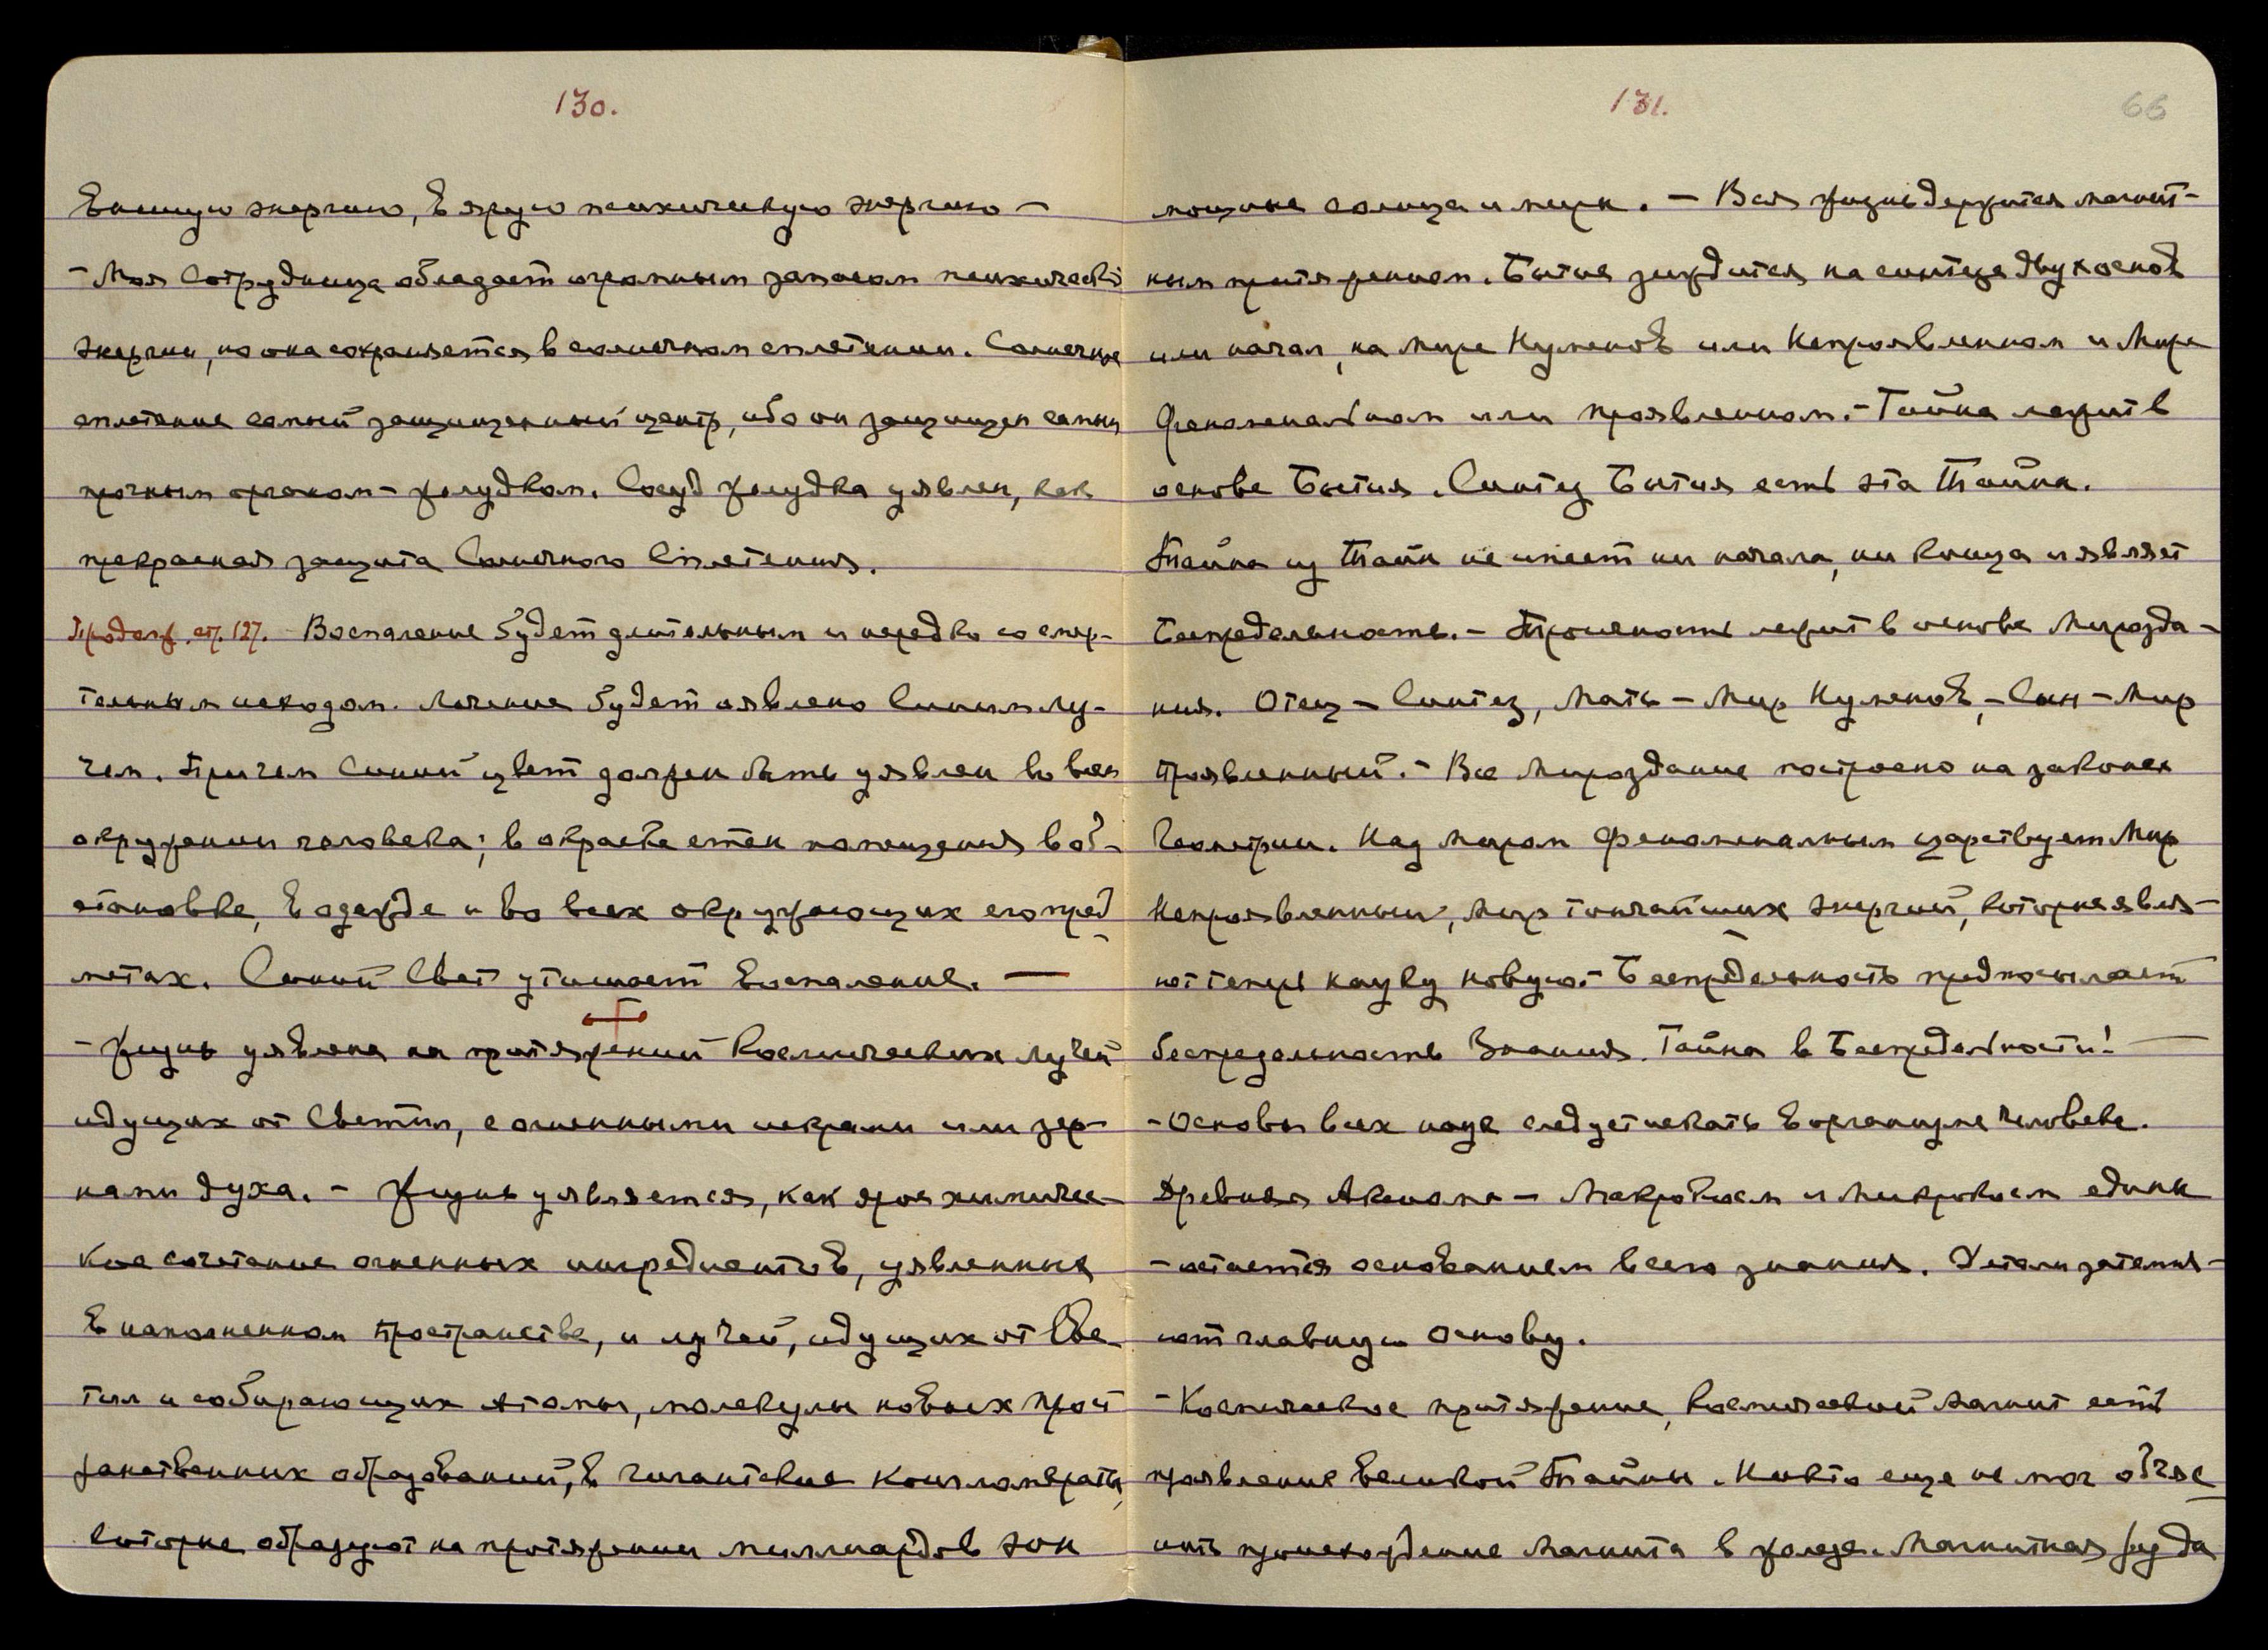 130.
Высшую энергию, в ярую психическую энергию —
- Моя Сотрудница обладает огромным запасом психической
энергии, но она сохраняется в солнечном сплетении. Солнечное
сплетение самый защищенный центр, ибо он защищен самым
прочным органом - желудком. Сосуд желудка уявлен, как
прекрасная защита Солнечного Сплетения.
Продолж. стр. 127. - Воспаление будет длительным и нередко со смер-
тельным исходом. Лечение будет оявлено Синим лу-
чем. Причем Синий цвет должен быть уявлен во всем
окружении человека; в окраске стен помещения в об-
становке, в одежде и во всех окружающих его пред-
метах. Синий Свет утишает Воспаление. —
- Жизнь уявлена на притяжении Космических лучей
идущих от Светил, с огненными искрами или зер-
нами духа. - Жизнь уявляется, как ярое химичес-
кое сочетание огненных ингредиентов, уявленных
в напряженном пространстве, и лучей, идущих от Све-
тил и собирающих атомы, молекулы новых прост
ранственных образований, в гигантские конгломераты,
которые образуют на протяжении миллиардов эон
131.
66
мощные солнца и миры. - Вся жизнь держится магнит-
ным притяжением. Бытие зиждется на синтезе двух основ
или начал, на мире Нуменов или Непроявленном и Мире
Феноменальном или проявленном. - Тайна лежит в
основе Бытия. Синтез Бытия есть эта Тайна.
Тайна из Тайн не имеет ни начала, ни конца и являет
Беспредельность. - Троичность лежит в основе Мирозда-
ния. Отец - Синтез, Мать - Мир Нуменов, - Сын - Мир
проявленный. - Все Мироздание построено на законах
Геометрии. Над миром феноменальным царствует Мир
Непроявленный, мир тончайших энергий, которые явля-
ют теперь науку новую. - Беспредельность предпосылает
беспредельность Знания. Тайна в Беспредельности! —
- Основы всех наук следует искать в организме человека.
Древняя Аксиома - Макрокосм и Микрокосм едины
- остается основанием всего знания. Устали затемня-
ют главную основу.
- Космическое притяжение, Космический Магнит есть
проявление великой Тайны. Никто еще не мог объяс-
нить происхождение Магнита в железе. Магнитная руда